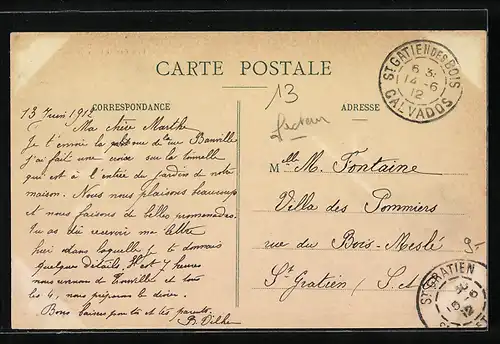 CARTE POSTALE
CORRESPONDANCE
ADRESSE
13 Juin 1912
Ma chère Marthe
Je t'envoie la rue Banville
j'ai fait une croix sur la tourelle
qui est à l'entrée du jardin de notre
maison. Nous nous plaisons beaucoup
et nous faisons de belles promenades.
Tu as dû recevoir ma lettre
hier dans laquelle je te donnais
quelques détails. Il est 7 heures
nous venons de Trouville et tous
les 4, nous préparons le dîner.
Bons baisers pour toi et tes parents
B.
13
Melle M. Fontaine
Villa des Pommiers
rue du Bois-Meslé
St Gratien (S. et
ST GATIEN DES BOIS
6 3.
14 - 6
12
CALVADOS
ST GRATIEN